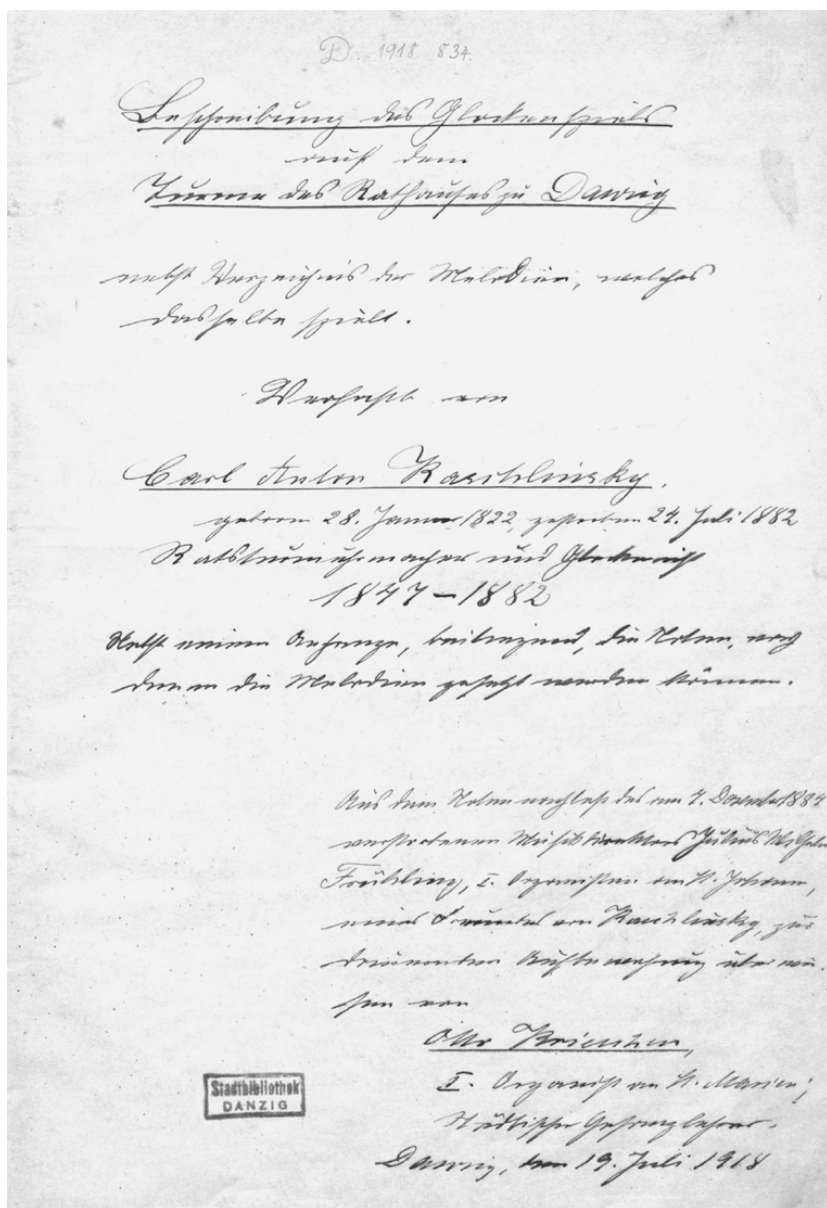 D. 1918 834.
Beschreibung des Glockenspiels
auf dem
Turme des Rathauses zu Danzig
nebst Verzeichnis der Melodien, welches
dasselbe spielt.
Verfaßt von
Carl Anton Kaschlinsky,
geboren 28. Januar 1822, gestorben 24. Juli 1882
Ratsturmuhrmacher und Glockenist
1847–1882
Nebst einem Anhange, die Noten, nach
denen die Melodien gesetzt werden können.
Aus dem Notennachlaß des am 7. 188
verstorbenen Musikdirektors Julius
Frühling, I. Organisten an St. Johann,
eines Freundes von Kaschlinsky, zur
dauernden Aufbewahrung überwie-
sen von
Otto Krieschen,
I. Organist an St. Marien;
Städtischer Gesanglehrer.
Danzig, den 19. Juli 1918
Stadtbibliothek
DANZIG